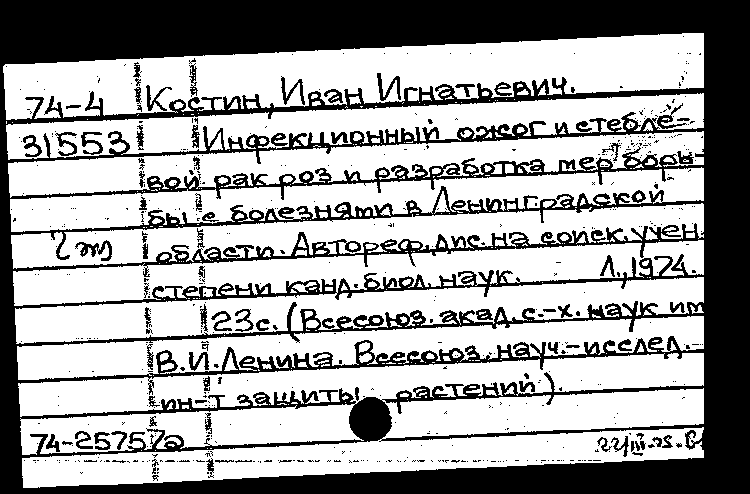 74-4 Костин, Иван Игнатьевич.
31553 Инфекционный ожог и стебле-
вой рак роз и разработка мер борь-
бы с болезнями в Ленинградской
области. Автореф. дис. на соиск. учен.
степени канд. биол. наук. Л., 1974.
23с. (Всесоюз. акад. с.-х. наук им
В.И.Ленина. Всесоюз. науч.-исслед.
ин-т защиты растений).
74-25757